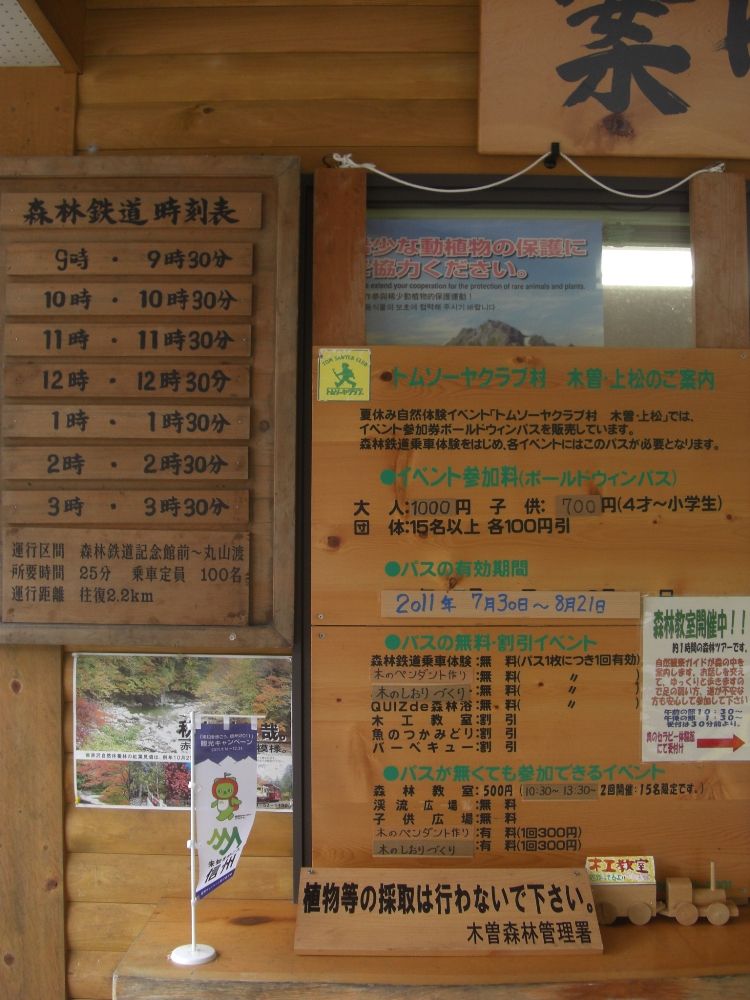 案
森林鉄道 時刻表
9時 ・ 9時30分
10時 ・ 10時30分
11時 ・ 11時30分
12時 ・ 12時30分
1時 ・ 1時30分
2時 ・ 2時30分
3時 ・ 3時30分
運行区間 森林鉄道記念館前～丸山渡
所要時間 25分 乗車定員 100名
運行距離 往復2.2km
少な動植物の保護に
協力ください。
extend your cooperation for the protection of rare animals and plants.
TOM SAWYER CLUB
トムソーヤクラブ
トムソーヤクラブ村 木曽・上松のご案内
夏休み自然体験イベント「トムソーヤクラブ村 木曽・上松」では、
イベント参加券ボールドウィンパスを販売しています。
森林鉄道乗車体験をはじめ、各イベントにはこのパスが必要となります。
●イベント参加料(ボールドウィンパス)
大 人:1000円 子 供: 700円(4才～小学生)
団 体:15名以上 各100円引
●パスの有効期間
2011年 7月30日～8月21日
●パスの無料・割引イベント
森林鉄道乗車体験:無 料(パス1枚につき1回有効)
木のペンダント作り:無 料( 〃 )
木のしおりづくり:無 料( 〃 )
QUIZde森林浴:無 料( 〃 )
木工教室:割 引
魚のつかみどり:割 引
バーベキュー:割 引
●パスが無くても参加できるイベント
森林教室:500円(10:30～・13:30～2回開催:15名限定です。)
渓流広場:無 料
子供広場:無 料
木のペンダント作り:有 料(1回300円)
木のしおりづくり:有 料(1回300円)
森林教室開催中!!
約1時間の森林ツアーです。
自然観察ガイドが森の中を
案内します。お話しを交え
て、ゆっくりと歩きますの
で足の弱い方、道が不安な
方も安心して参加して下さい
午前の部10:30～
午後の部 1:30～
受付は30分前より。
奥のセラピー体験館
にて受付け
観光キャンペーン
信州
植物等の採取は行わないで下さい。
木曽森林管理署
木工教室